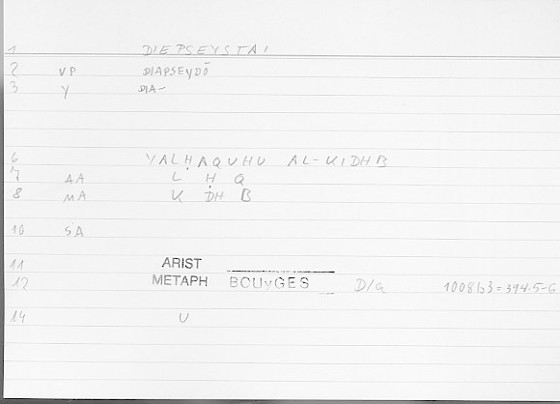 1 DIEPSEYSTAI
2 VP DIAPSEYDŌ
3 Y DIA-
6 YALḤAQUHU AL-KIDHB
7 AA L Ḥ Q
8 MA K DH B
10 SA
11 ARIST
12 METAPH BOUyGES D/a 1008b3=394.5-6
14 U